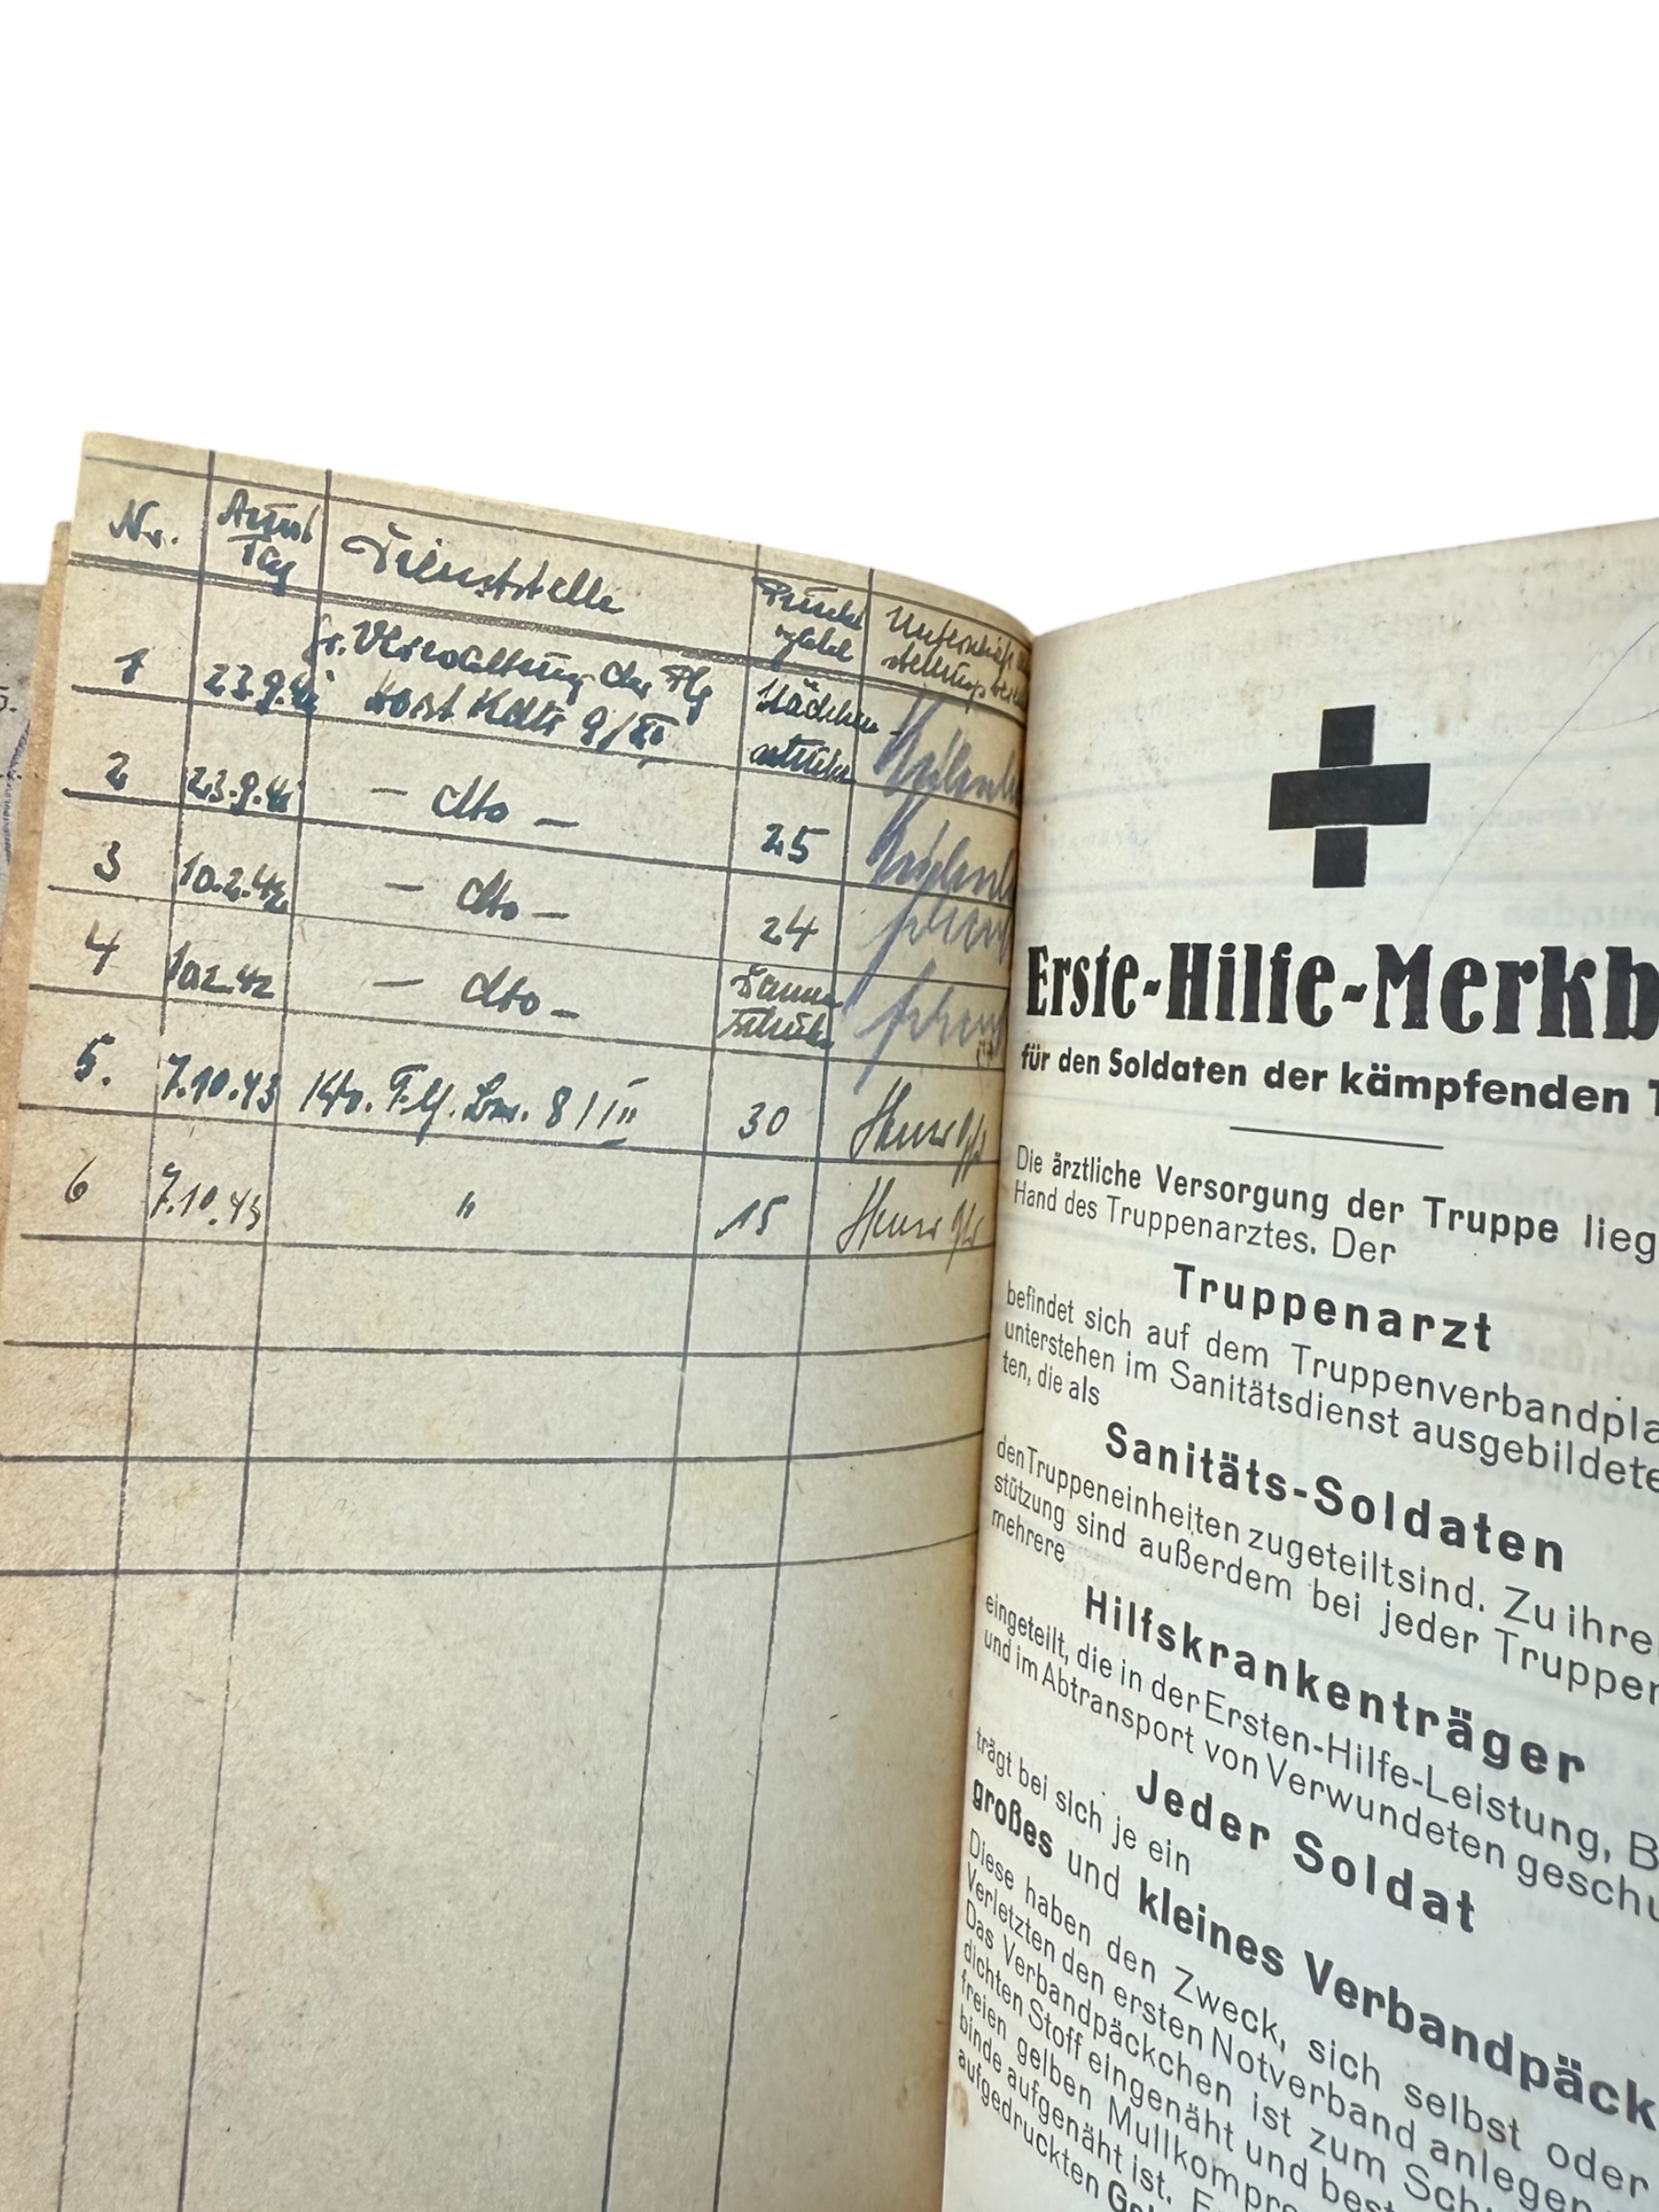 Nr.
Tag
Dienststelle
1 23.9.41 Fr. Verwaltung der Flg
Horst Kdtr 9/XI
2 23.9.41 — dto — 25
3 10.2.42 — dto — 24
4 10.2.42 — dto —
5. 7.10.43 Kdo. F.H. Ber. 8/III 30
6 7.10.43 " 15
Erste-Hilfe-Merkb
für den Soldaten der kämpfenden T
Die ärztliche Versorgung der Truppe lieg
Hand des Truppenarztes. Der
Truppenarzt
befindet sich auf dem Truppenverbandpla
unterstehen im Sanitätsdienst ausgebildete
ten, die als
Sanitäts-Soldaten
den Truppeneinheiten zugeteilt sind. Zu ihre
stützung sind außerdem bei jeder Truppen
mehrere
Hilfskrankenträger
eingeteilt, die in der Ersten-Hilfe-Leistung, B
und im Abtransport von Verwundeten geschu
Jeder Soldat
trägt bei sich je ein
großes und kleines Verbandpäck
Diese haben den Zweck, sich selbst oder
Verletzten den ersten Notverband anlegen
Das Verbandpäckchen ist zum Schu
dichten Stoff eingenäht und best
freien gelben Mullkompre
binde aufgenäht ist. E
aufgedruckten Ge